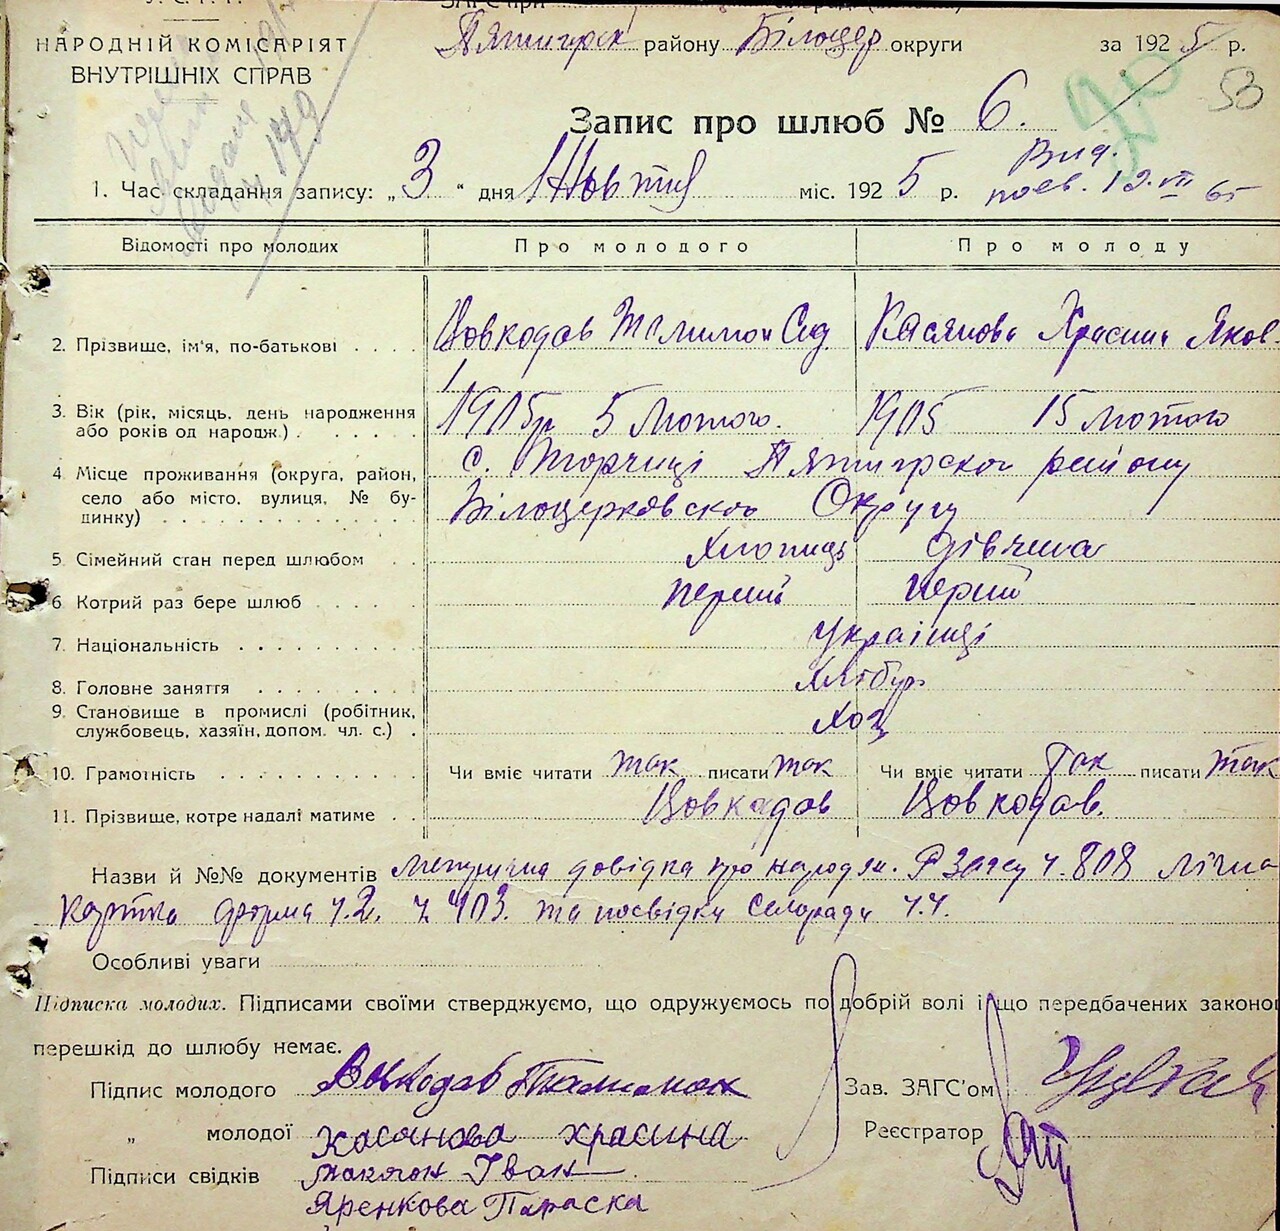 У.С.Р.Р.
НАРОДНІЙ КОМІСАРІЯТ
ВНУТРІШНІХ СПРАВ
ЗАГС при
Пятигорск району Білоцер округи за 1925 р.
53
Запис про шлюб № 6.
Вид.
1. Час складання запису: „3" дня Жовтня міс. 1925 р.
12.VII 65
Відомості про молодих Про молодого Про молоду
2. Прізвище, ім'я, по-батькові . . . . Вовкодав Талимон Сид Касянова Храсина Яков.
3. Вік (рік, місяць, день народження
або років од народж.) . . . . . . 1905р 5 Лютого. 1905 15 Лютого
4 Місце проживання (округа, район,
село або місто, вулиця, № бу-
динку) . . . . . . . . . . . . .
с. Торчиці Пятигрског району
Білоцерковског Округу
5. Сімейний стан перед шлюбом . . Хлопиць дівчина
6 Котрий раз бере шлюб . . . . . перший перший
7. Національність . . . . . . . . . Украінці
8. Головне заняття . . . . . . . . Хлібур
9. Становище в промислі (робітник,
службовець, хазяїн, допом. чл. с.) . Хоз
10. Грамотність . . . . . . . . . . Чи вміє читати так писати так Чи вміє читати так писати так
11. Прізвище, котре надалі матиме . . Вовкадав Вовкодав.
Назви й №№ документів довідка про народж. Р Загсу ч. 808
картка форма ч. 2. ч 403. та посвідки Сельради ч. ч.
Особливі уваги
Підписка молодих. Підписами своїми стверджуємо, що одружуємось по добрій волі і що передбачених законо
перешкід до шлюбу немає.
Підпис молодого Вовкодав Талимон Зав. ЗАГС'ом
„ молодої Касанова храсина Реєстратор
Підписи свідків Макогон Іван
Яренкова Параска